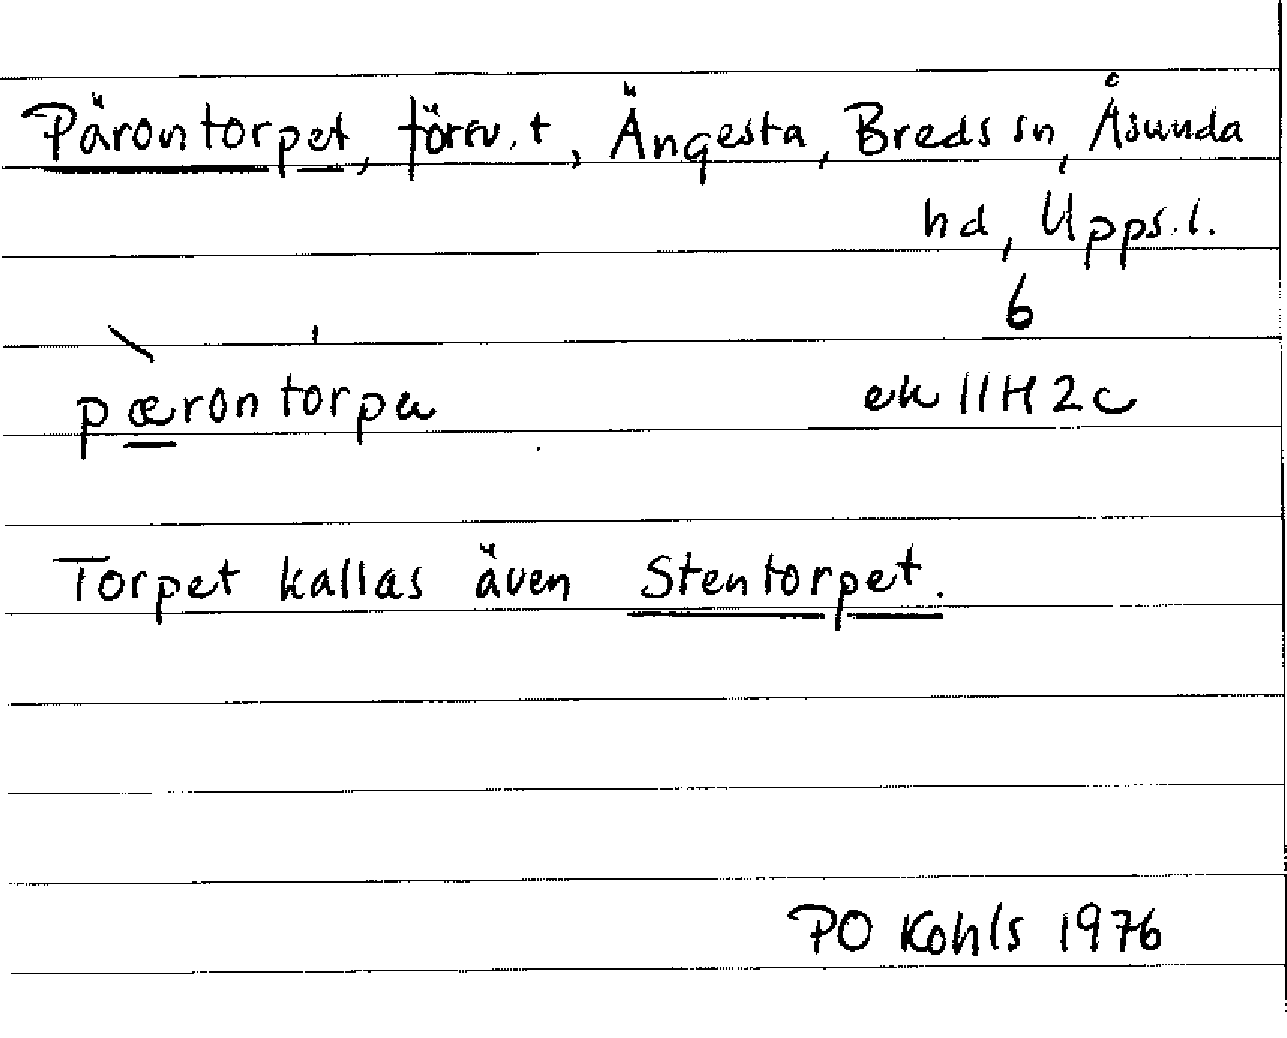 Pärontorpet, försv. t, Ängesta, Breds sn, Åsunda
hd, Upps.l.
6
pærontorpa ek 11H2c
Torpet kallas även Stentorpet.
PO Kohls 1976